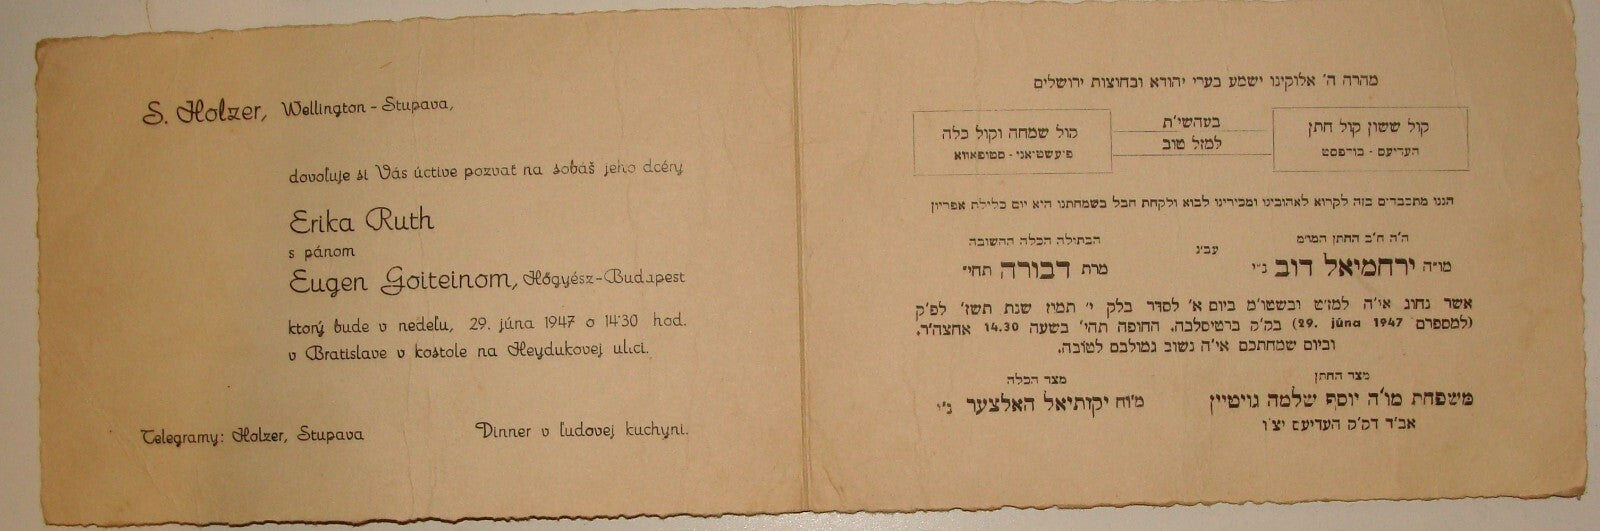 S. Holzer, Wellington - Stupava,
dovoľuje si Vás úctive pozvať na sobáš jeho dcéry
Erika Ruth
s pánom
Eugen Goiteinom, Hőgyész-Budapest
ktorý bude v nedeľu, 29. júna 1947 o 14·30 hod.
v Bratislave v kostole na Heydukovej ulici.
Telegramy: Holzer, Stupava
Dinner v ľudovej kuchyni.
מהרה ה׳ אלוקינו ישמע בערי יהודא ובחוצות ירושלים
קול ששון קול חתן
העדיעס - בודפסט
בעהשי״ת
למזל טוב
קול שמחה וקול כלה
פיעשטיאני - סטופאווא
הננו מתכבדים בזה לקרוא לאהובינו ומכירינו לבוא ולקחת חבל בשמחתנו היא יום כלילת אפריון
ה״ה ח״כ החתן המו״מ
מו״ה ירחמיאל דוב נ״י
עב״ג
הבתולה הכלה החשובה
מרת דבורה תחי׳
אשר נחוג אי״ה למז״ט ובשטו״מ ביום א׳ לסדר בלק י׳ תמוז שנת תש״ז לפ״ק
(למספרם 29. júna 1947) בק״ק ברטיסלבה. החופה תהי׳ בשעה 14.30 אחצה״ר.
וביום שמחתכם אי״ה נשוב גמולכם לטובה.
מצד החתן
משפחת מו״ה יוסף שלמה גויטיין
אב״ד דק״ק העדיעס יצ״ו
מצד הכלה
מו״ח יקותיאל האלצער נ״י